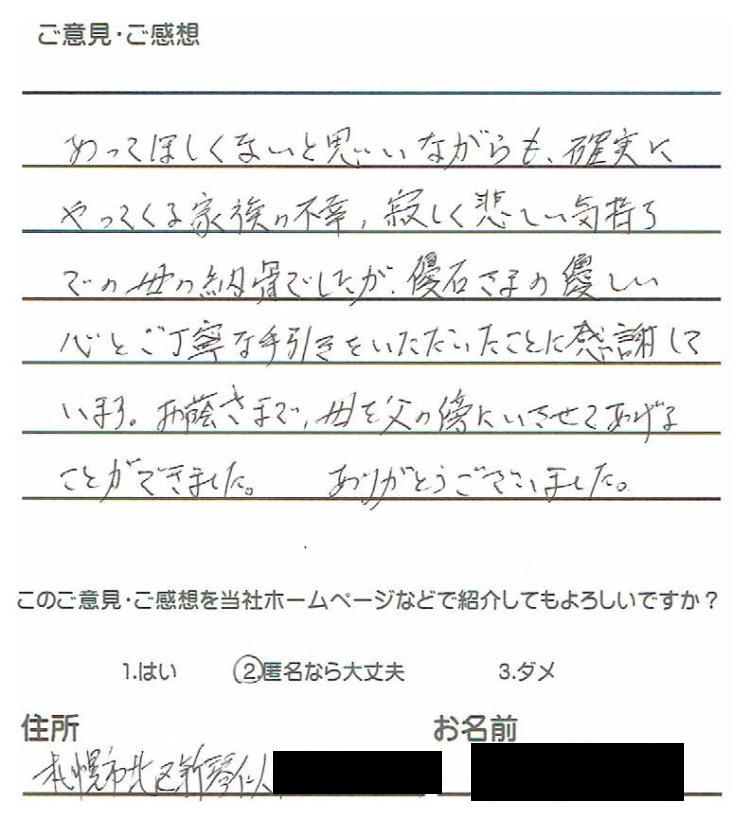 ご意見・ご感想
あってほしくないと思いながらも、確実に
やってくる家族の不幸、寂しく悲しい気持ち
での母の納骨でしたが、優石さまの優しい
心とご丁寧な手引きをいただいたことに感謝して
います。お蔭さまで、母を父の傍にいさせてあげる
ことができました。 ありがとうございました。
このご意見・ご感想を当社ホームページなどで紹介してもよろしいですか？
1.はい ②匿名なら大丈夫 3.ダメ
住所 お名前
札幌市北区新琴似